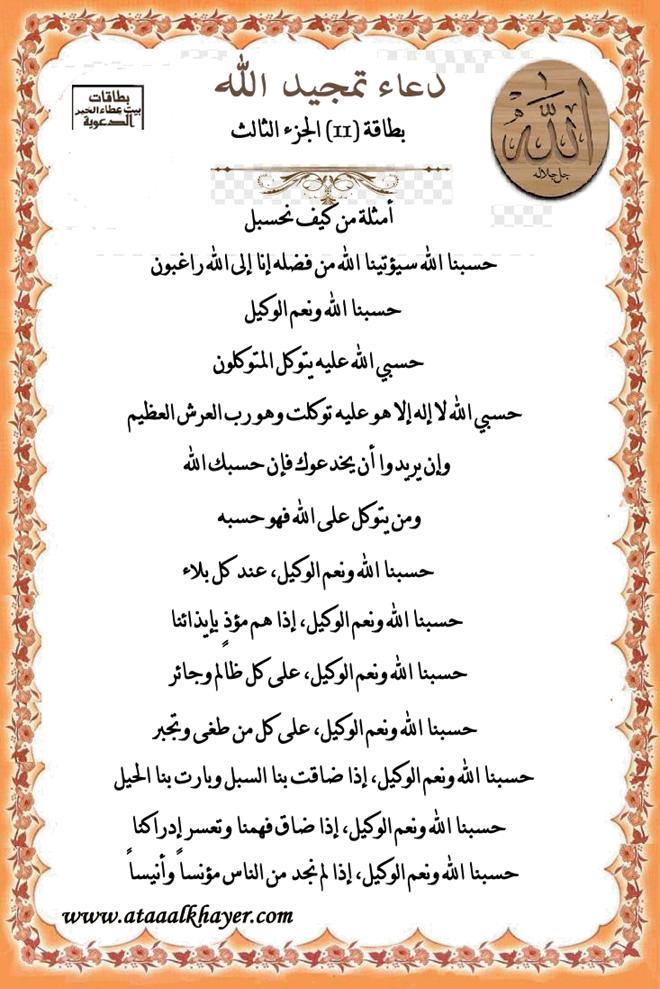 دعاء تمجيد الله
بطاقة (II) الجزء الثالث
بطاقات
بيت عطاء الخير
الدعوية
الله
جل جلاله
أمثلة من كيف نحسبل
حسبنا الله سيؤتينا الله من فضله إنا إلى الله راغبون
حسبنا الله ونعم الوكيل
حسبي الله عليه يتوكل المتوكلون
حسبي الله لا إله إلا هو عليه توكلت وهو رب العرش العظيم
وإن يريدوا أن يخدعوك فإن حسبك الله
ومن يتوكل على الله فهو حسبه
حسبنا الله ونعم الوكيل، عند كل بلاء
حسبنا الله ونعم الوكيل، إذا هم مؤذٍ بإيذائنا
حسبنا الله ونعم الوكيل، على كل ظالم وجائر
حسبنا الله ونعم الوكيل، على كل من طغى وتجبر
حسبنا الله ونعم الوكيل، إذا ضاقت بنا السبل وبارت بنا الحيل
حسبنا الله ونعم الوكيل، إذا ضاق فهمنا وتعسر إدراكنا
حسبنا الله ونعم الوكيل، إذا لم نجد من الناس مؤنساً وأنيساً
www.ataaalkhayer.com